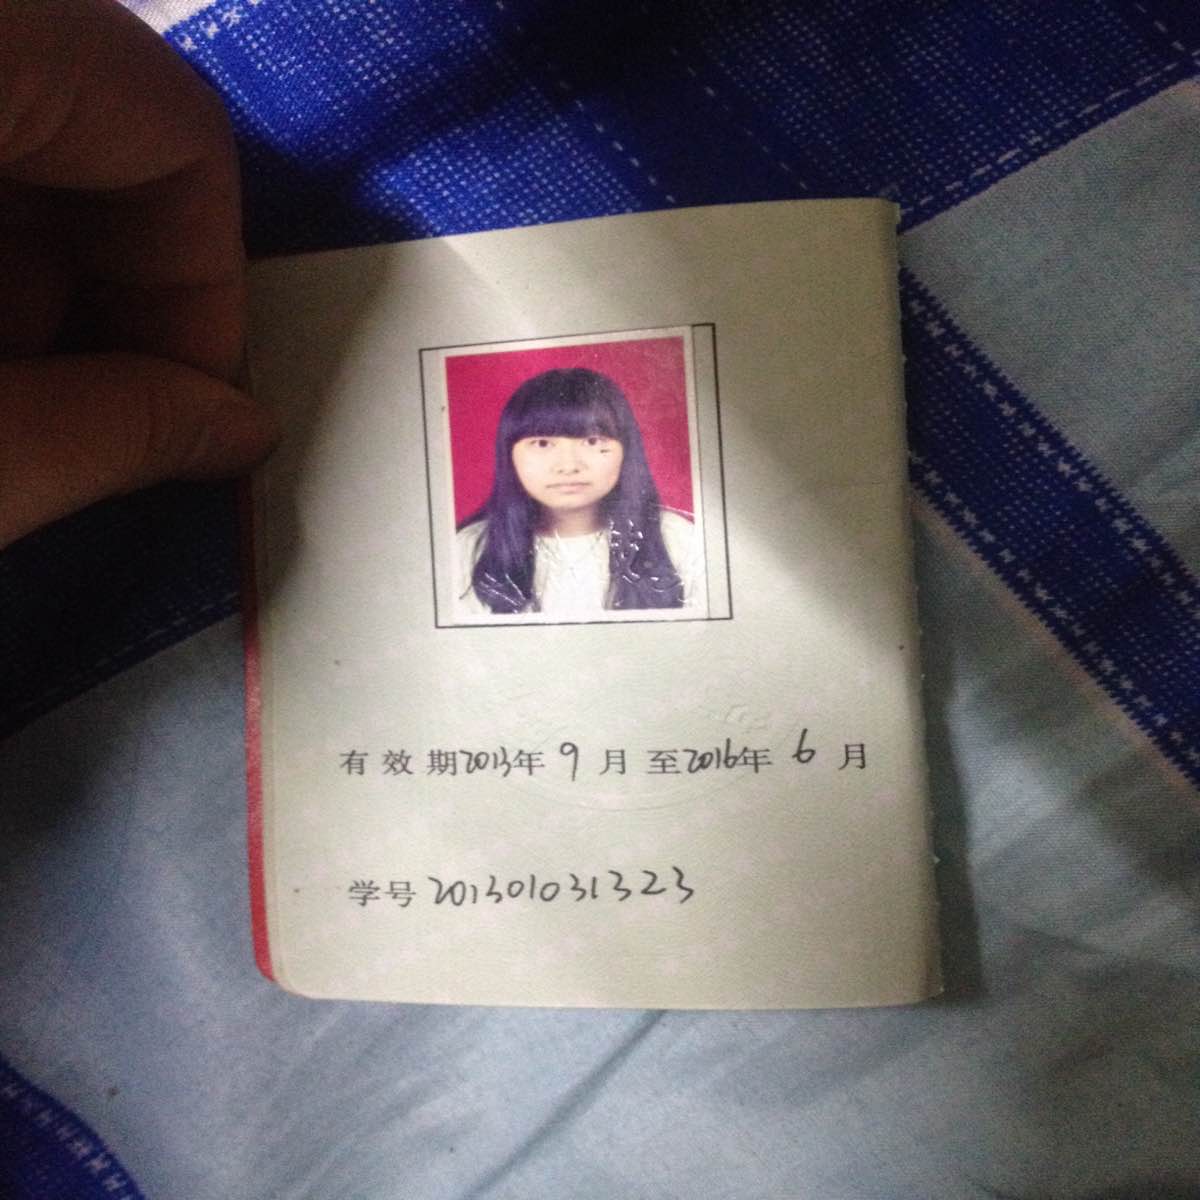 有效期2013年9月至2016年6月
学号 201301031323